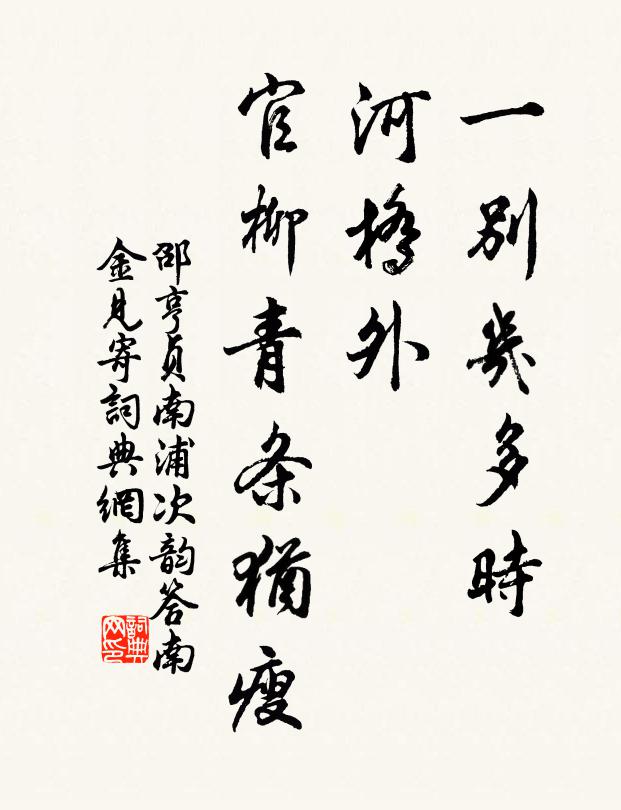 一別幾多時
河橋外
官柳青条猶瘦
邵亨貞南浦次韵答南
金見寄詞典網集
詞典
网印